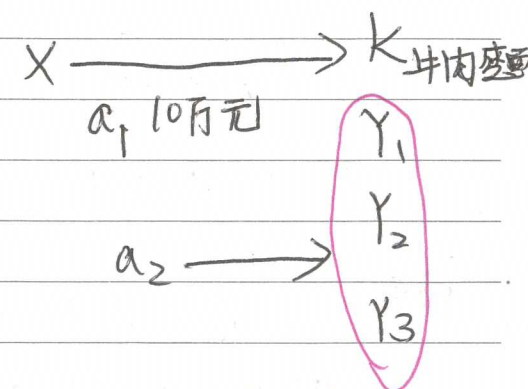 X → K 牛肉变更
a₁ 10万元
Y₁
Y₂
a₂ →
Y₃